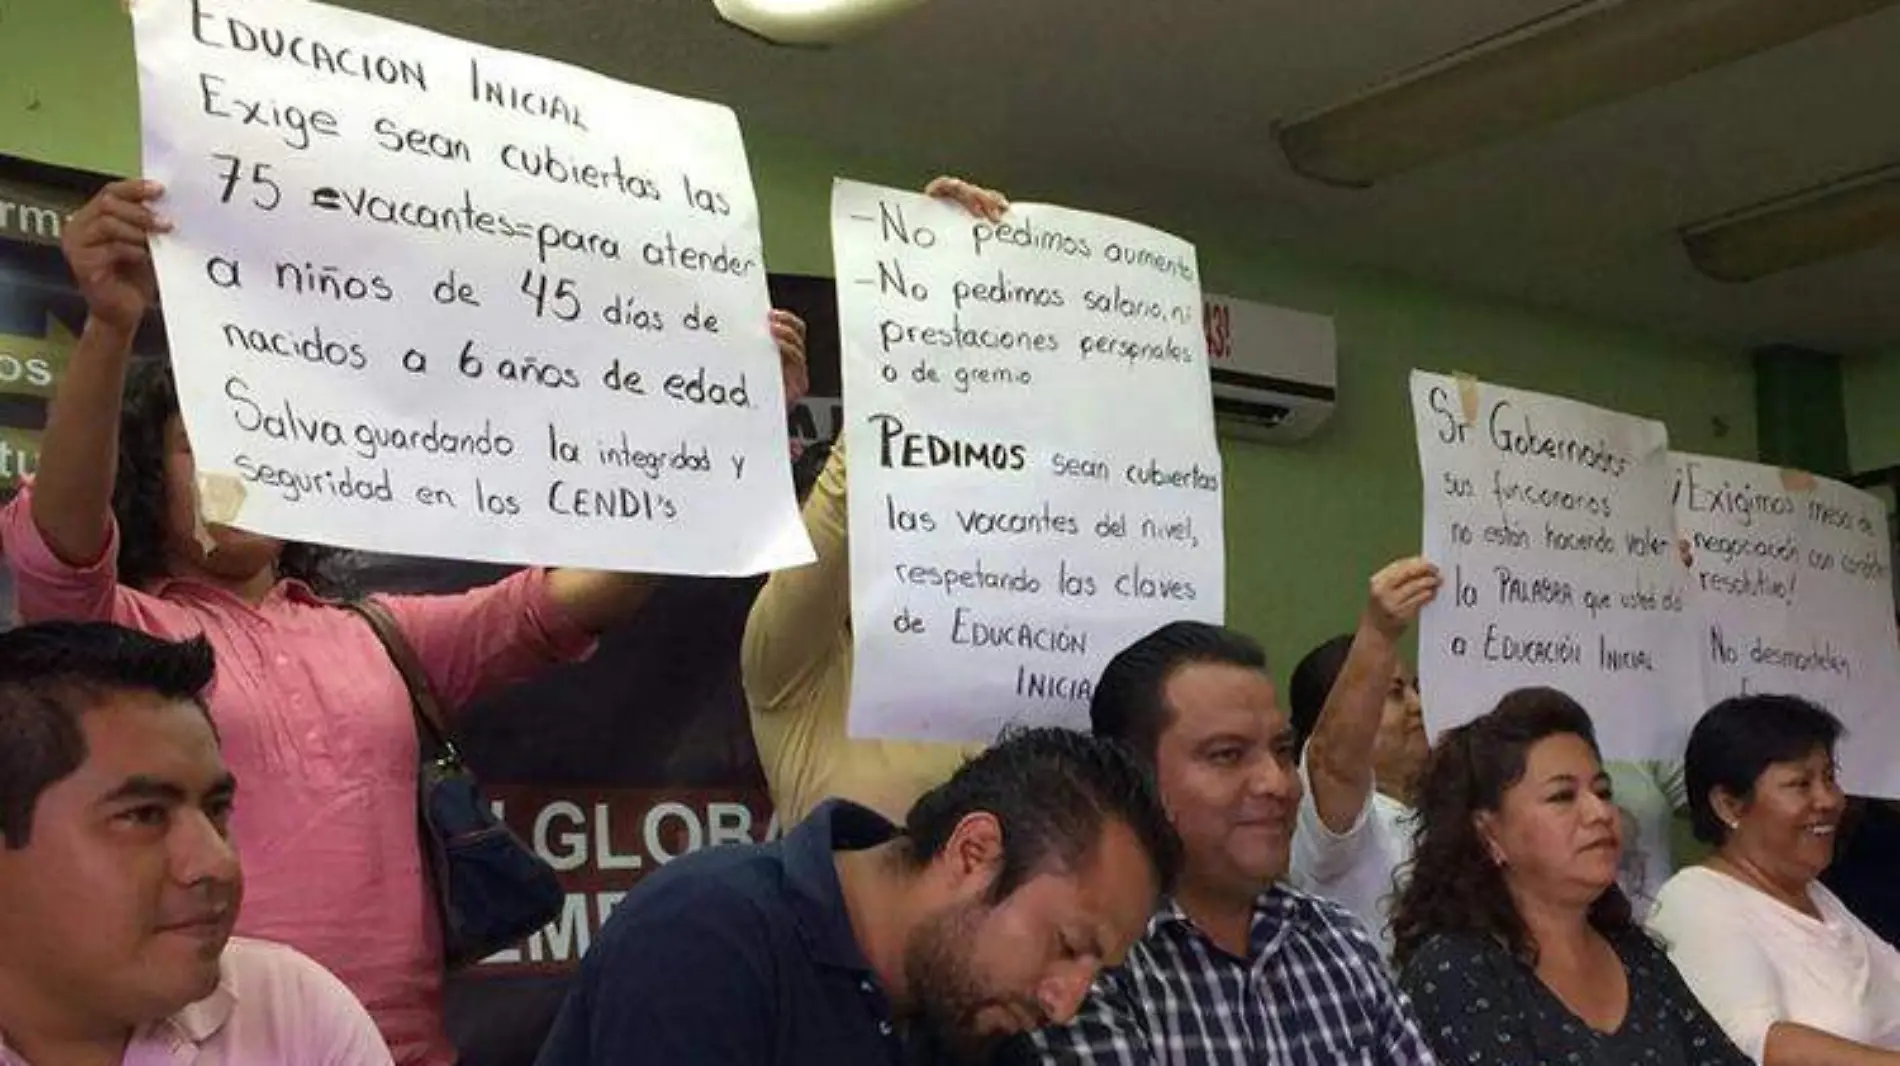 EDUCACION INICIAL
Exige sean cubiertas las
75 =vacantes= para atender
a niños de 45 días de
nacidos a 6 años de edad.
Salvaguardando la integridad y
seguridad en los CENDI's
-No pedimos aumento
-No pedimos salario, ni
prestaciones personales
o de gremio
PEDIMOS sean cubiertas
las vacantes del nivel,
respetando las claves
de EDUCACIÓN
INICIA
Sr Gobernador
sus funcoranos
no están haciendo valer
la PALABRA que usted dió
a EDUCACIÓN INICIAL
¡Exigimos mesa de
negociación con carácter
resolutivo!
No desmantelen
13!
rm
os
tu
GLOBA
EM